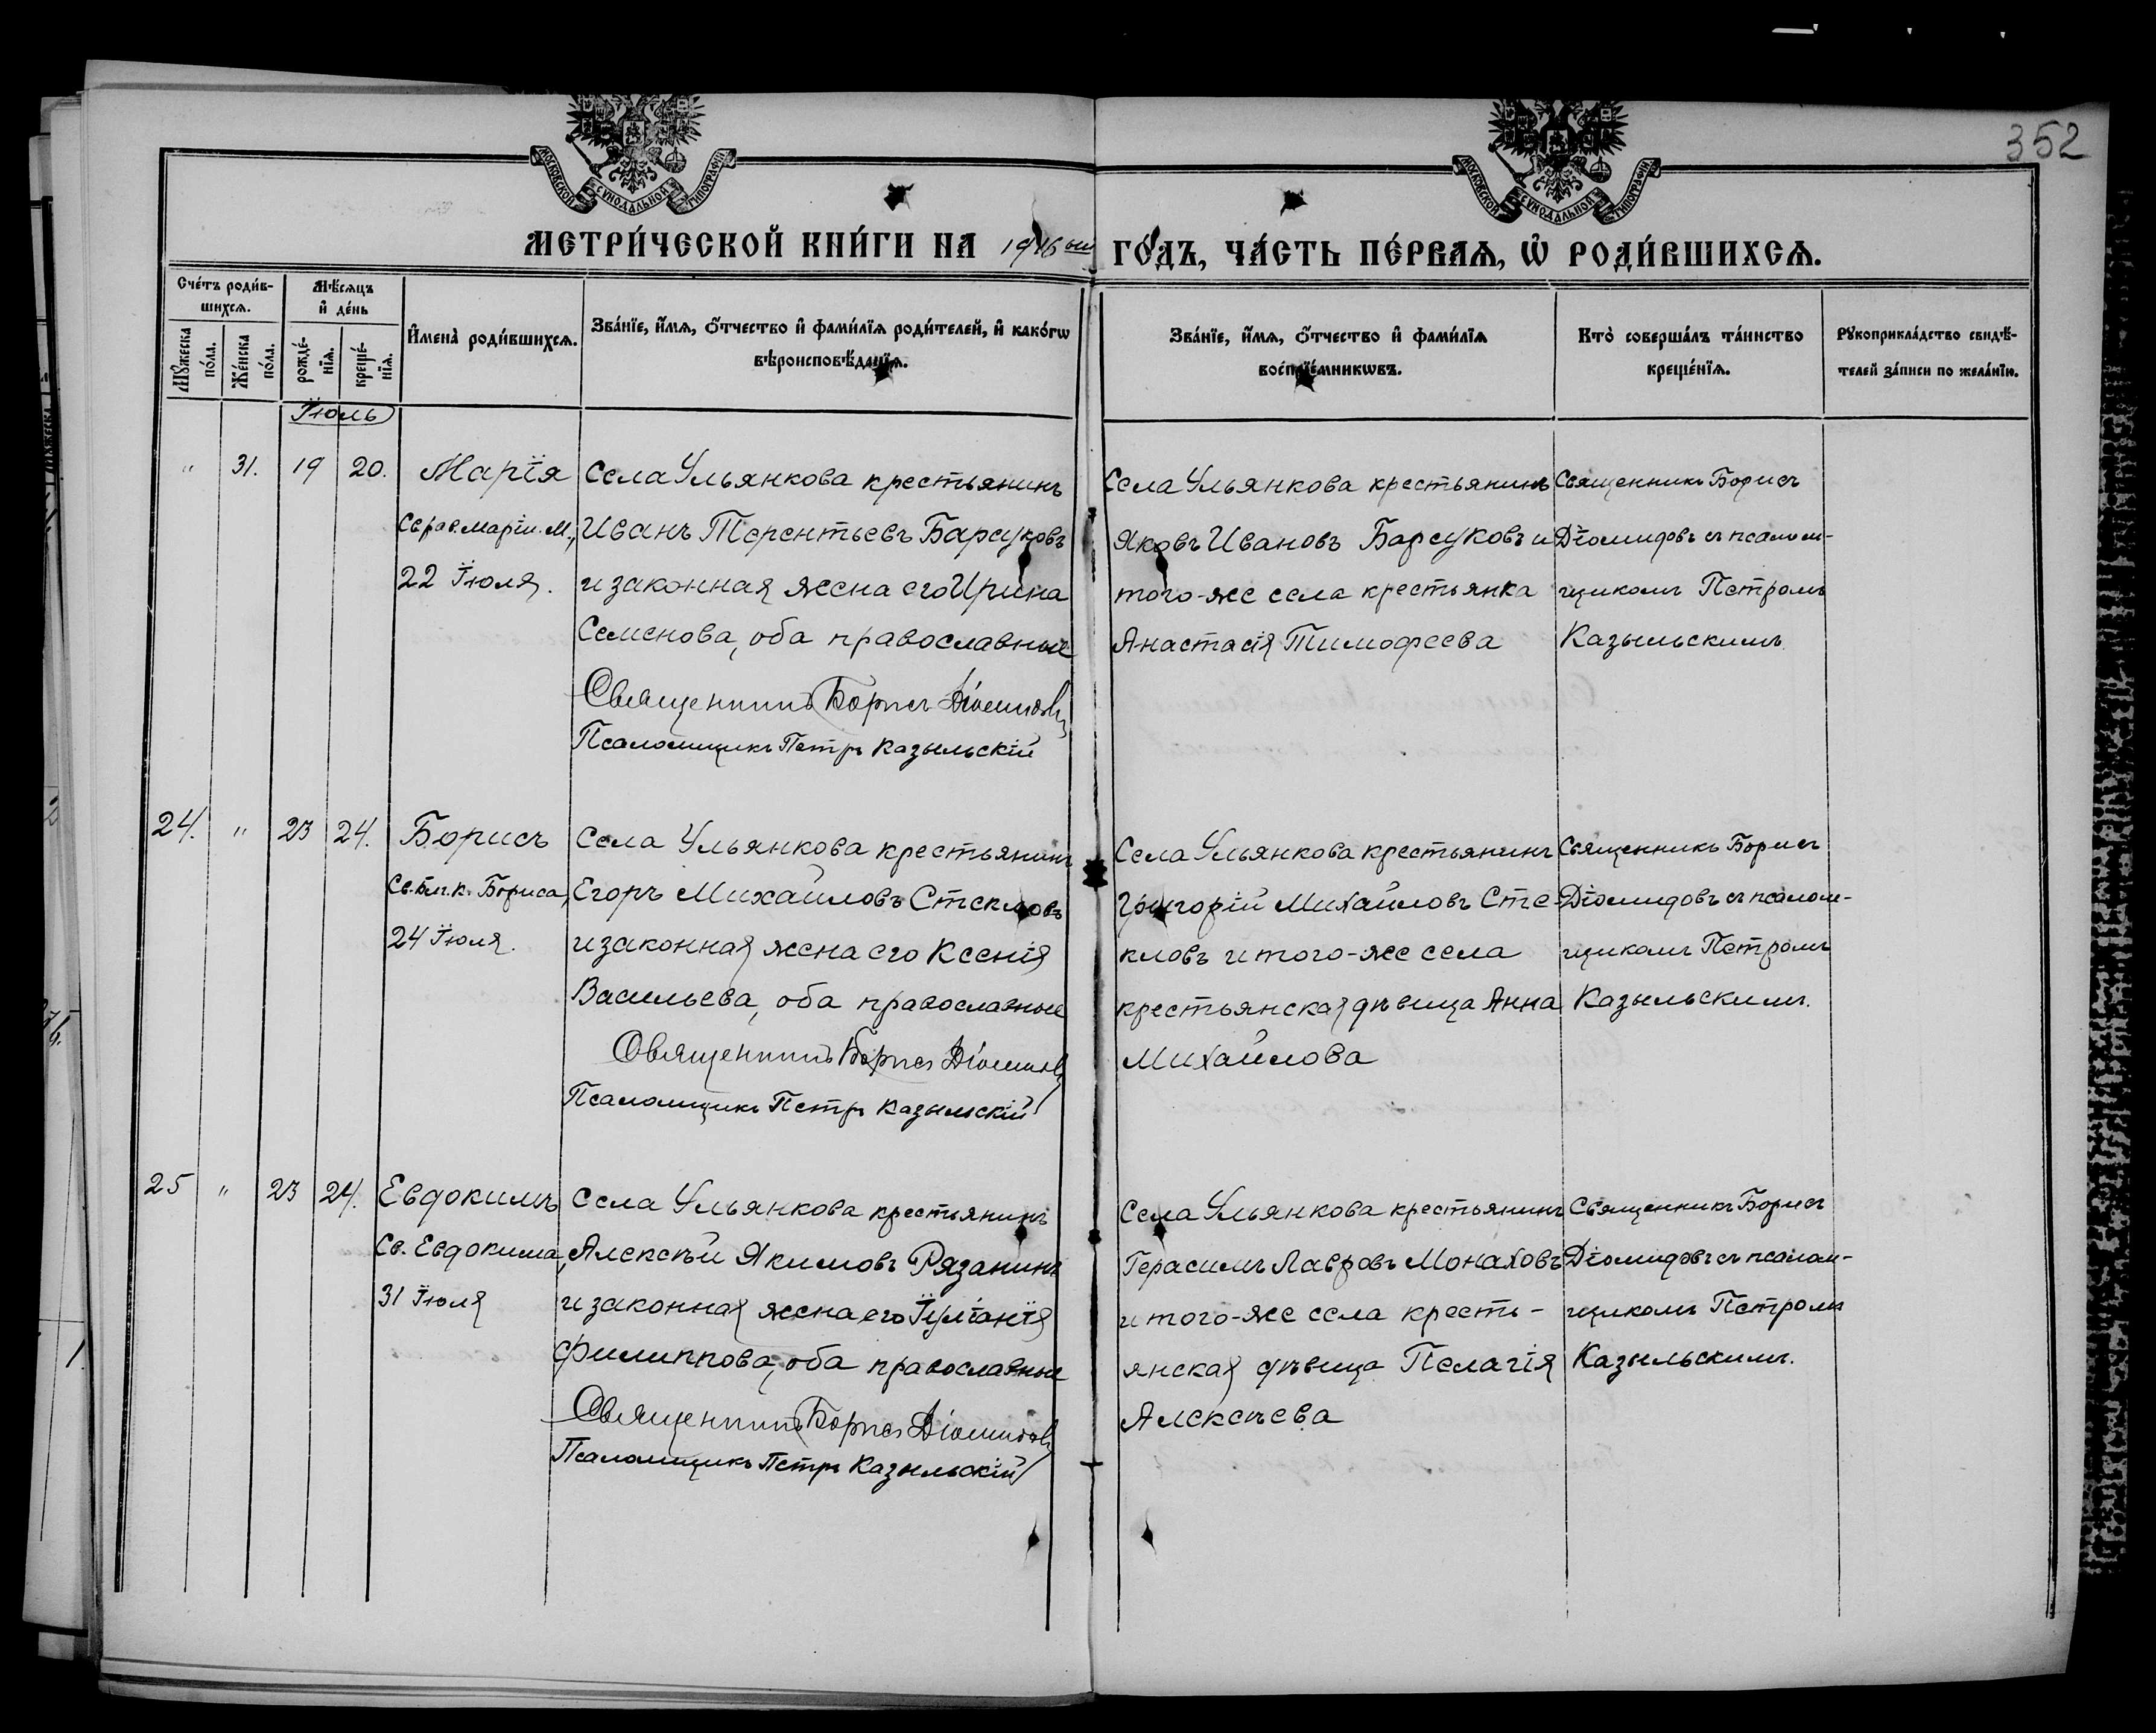 352
МОСКОВСКОЙ СѴНОДАЛЬНОЙ ТИПОГРАФІИ
МОСКОВСКОЙ СѴНОДАЛЬНОЙ ТИПОГРАФІИ
МЕТРИ́ЧЕСКОЙ КНИ́ГИ НА 1916 ый ГО́ДЪ, ЧА́СТЬ ПЕ́РВАЯ, Ѡ҆ РОДИ́ВШИХСѦ.
Сче́тъ роди́в-
шихсѧ.
Мꙋ́жеска по́ла.
Же́нска по́ла.
Мѣ́сѧцъ
и҆ де́нь
рожде́-
нїѧ.
креще́-
нїѧ.
И҆мена̀ роди́вшихсѧ.
Зва́нїе, и҆́мѧ, ѻ҆́тчество и҆ фами́лїѧ роди́телей, и҆ како́гѡ
вѣроисповѣ́данїѧ.
Зва́нїе, и҆́мѧ, ѻ҆́тчество и҆ фами́лїѧ
воспрїе́мникѡвъ.
Кто̀ соверша́лъ та́инство
креще́нїѧ.
Рꙋкоприкла́дство свидѣ́-
телей за́писи по жела́нїю.
Іюль
" 31. 19 20.
Марія
Св. рав. Маріи. М.,
22 Іюля.
Села Ульянкова крестьянинъ
Иванъ Терентьевъ Барсуковъ
и законная жена его Ирина
Семенова, оба православные
Священникъ Борисъ Діомидовъ
Псаломщикъ Петръ Казыльскій
Села Ульянкова крестьянинъ
Яковъ Ивановъ Барсуковъ и
того-же села крестьянка
Анастасія Тимофеева
Священникъ Борисъ
Діомидовъ съ псалом-
щикомъ Петромъ
Казыльскимъ
24. " 23 24.
Борисъ
Св. блг. к. Бориса,
24 Іюля.
Села Ульянкова крестьянинъ
Егоръ Михайловъ Стекловъ
и законная жена его Ксенія
Васильева, оба православные
Священникъ Борисъ Діомидовъ
Псаломщикъ Петръ Казыльскій
Села Ульянкова крестьянинъ
Григорій Михайловъ Сте-
кловъ и того-же села
крестьянская дѣвица Анна
Михайлова
Священникъ Борисъ
Діомидовъ съ псалом-
щикомъ Петромъ
Казыльскимъ.
25 " 23 24.
Евдокимъ
Св. Евдокима,
31 Іюля
Села Ульянкова крестьянинъ
Алексѣй Якимовъ Рязанинъ
и законная жена его Іуліанія
Филиппова, оба православные
Священникъ Борисъ Діомидовъ
Псаломщикъ Петръ Казыльскій
Села Ульянкова крестьянинъ
Герасимъ Лавровъ Монаховъ
и того-же села кресть-
янская дѣвица Пелагія
Алексѣева
Священникъ Борисъ
Діомидовъ съ псалом-
щикомъ Петромъ
Казыльскимъ.